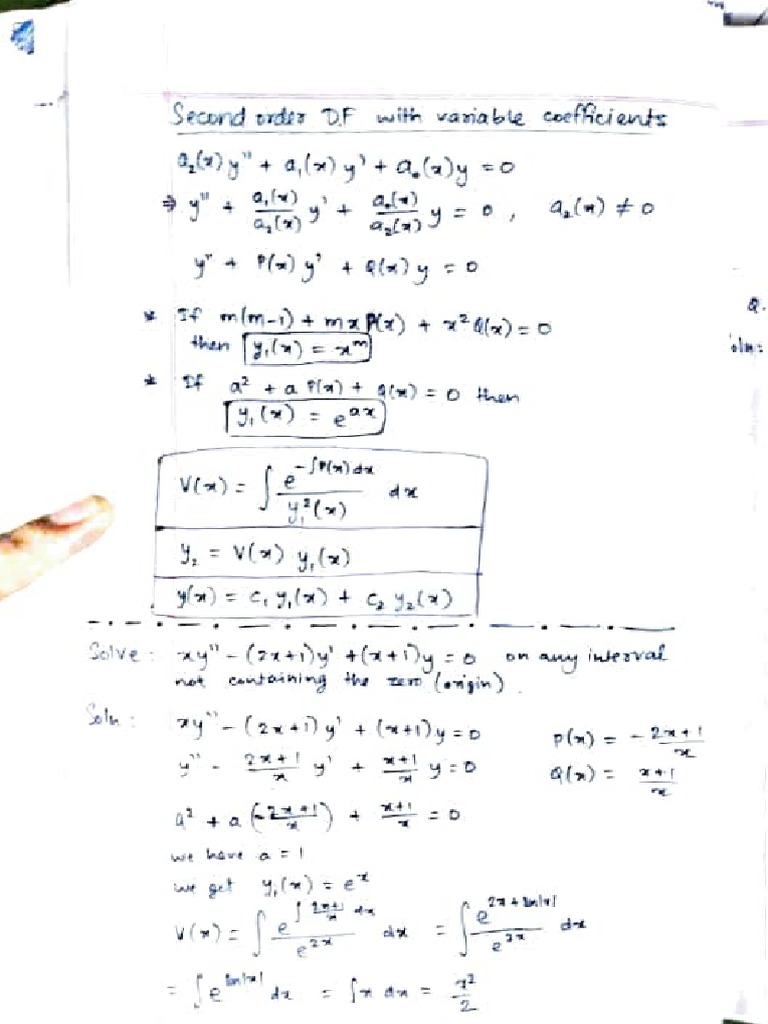 Second order D.F with variable coefficients
a₂(x)y" + a₁(x)y' + a₀(x)y = 0
⇒ y" + a₁(x)/a₂(x) y' + a₀(x)/a₂(x) y = 0, a₂(x) ≠ 0
y" + P(x)y' + Q(x)y = 0
Q.
* If m(m-1) + mxP(x) + x²Q(x) = 0
then y₁(x) = x^m
soln:
* If a² + aP(x) + Q(x) = 0 then
y₁(x) = e^{ax}
V(x) = ∫ e^{-∫P(x)dx} / y₁²(x) dx
y₂ = V(x) y₁(x)
y(x) = c₁y₁(x) + c₂y₂(x)
Solve: xy" - (2x+1)y' + (x+1)y = 0 on any interval
not containing the zero (origin).
Soln: xy" - (2x+1)y' + (x+1)y = 0
P(x) = - 2x+1/x
y" - 2x+1/x y' + x+1/x y = 0
Q(x) = x+1/x
a² + a(-2x+1/x) + x+1/x = 0
we have a = 1
we get y₁(x) = e^x
V(x) = ∫ e^{∫ 2x+1/x dx} / e^{2x} dx = ∫ e^{2x + ln|x|} / e^{2x} dx
= ∫ e^{ln|x|} dx = ∫ x dx = x²/2